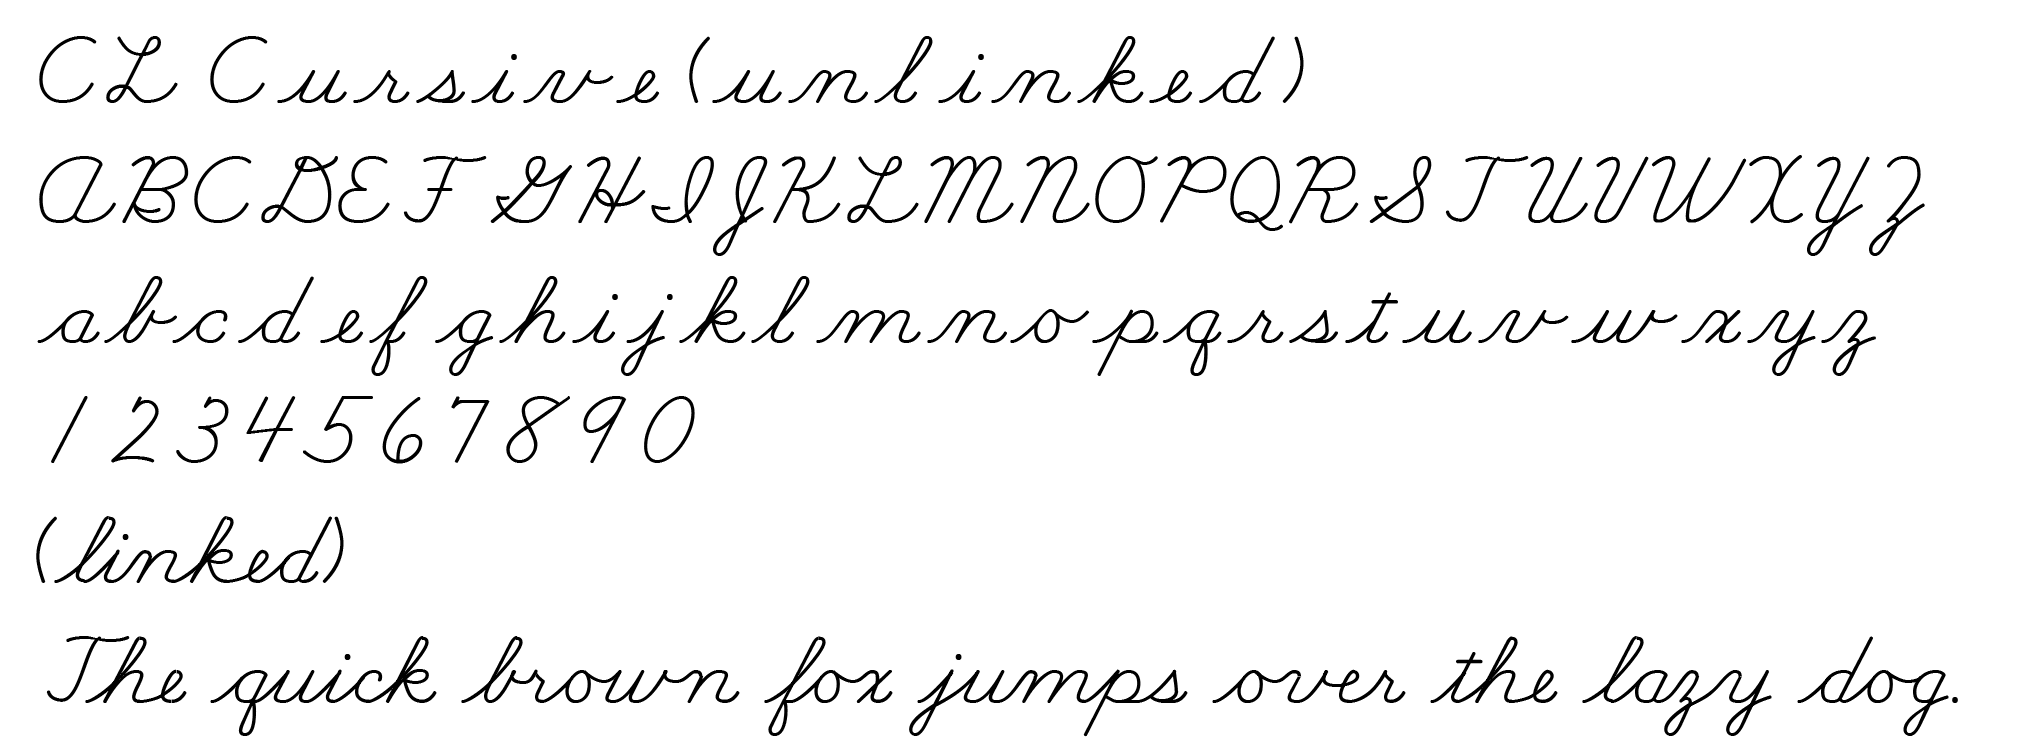 CL Cursive (unlinked)
ABCDEFGHIJKLMNOPQRSTUVWXYZ
abcdefghijklmnopqrstuvwxyz
1234567890
(linked)
The quick brown fox jumps over the lazy dog.